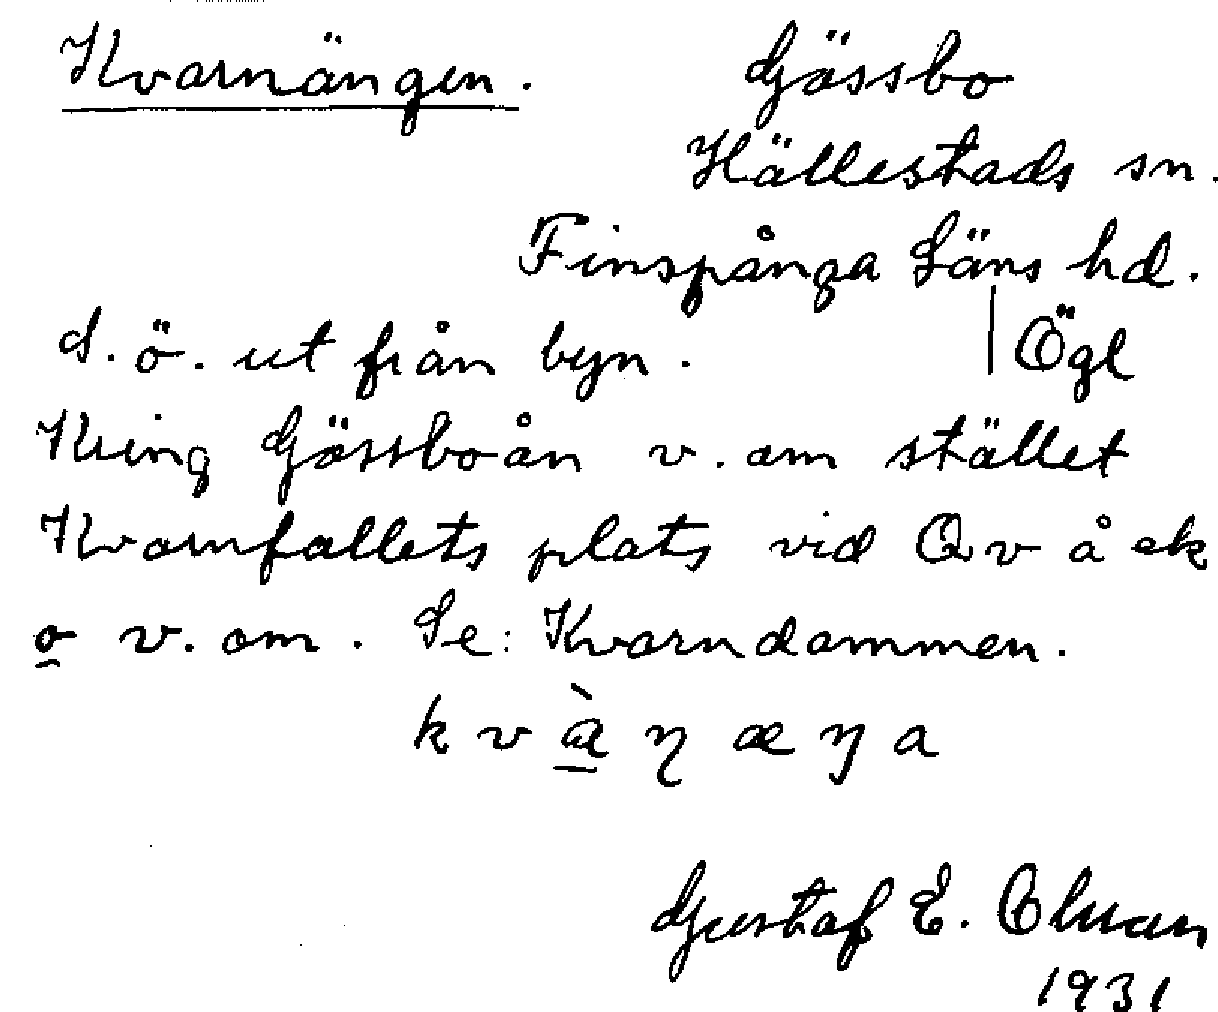 Kvarnängen. Gässbo
Hällestads sn.
Finspånga Läns hd.
d. ö. ut från byn. | Ögl
Kring Gässboån v. om stället
Kvarnfallets plats vid Qv å ek
o v. om. Se: Kvarndammen.
k v à η æ ŋ a
Gustaf E. Olman
1931